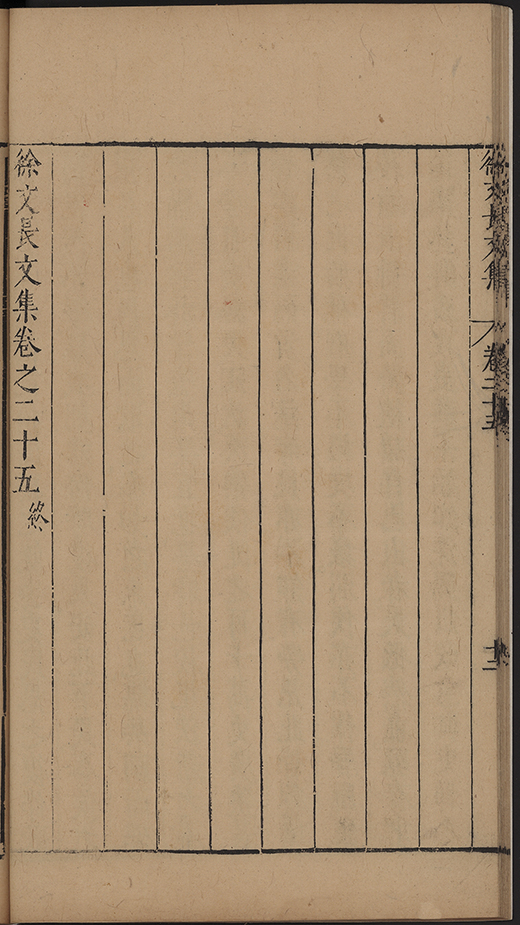 徐文長文集
卷二十五
十二
徐文長文集卷之二十五終